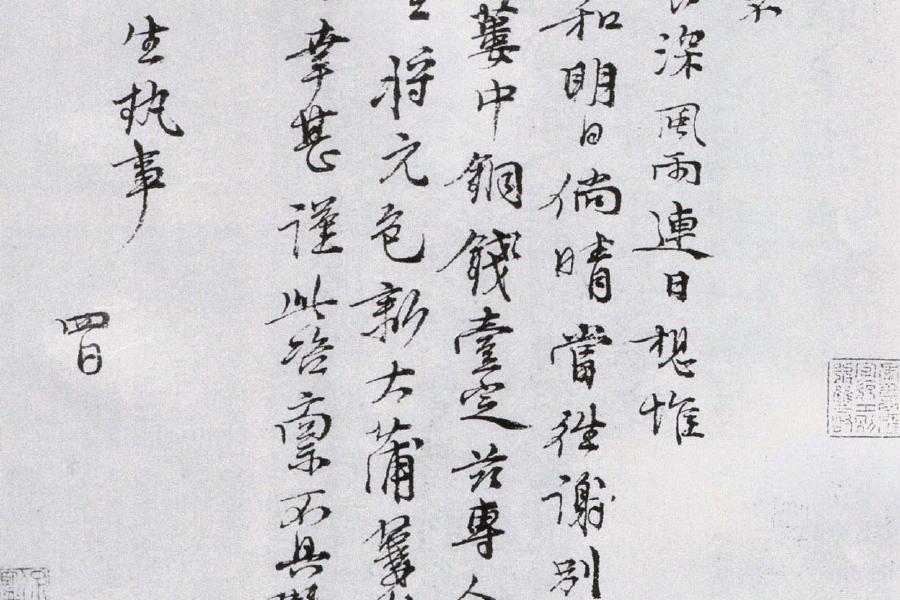 深風雨連日想惟
和明日倘晴當往謝別
蔞中銅錢壹定茲專人
將元色新大蒲蔞
幸甚謹此咨稟不具
生執事
四日